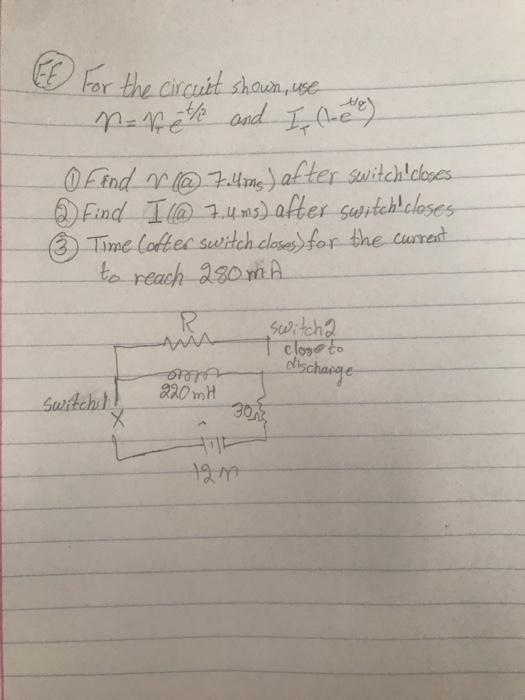 EE For the circuit shown, use
v = v_T e^{-t/τ} and I_T (1-e^{-t/τ})
① Find v (@ 7.4ms) after switch 1 closes
② Find I (@ 7.4ms) after switch 1 closes
③ Time (after switch closes) for the current
to reach 280 mA
R
switch 2
close to
discharge
220 mH
switch 1
X
30Ω
12 v